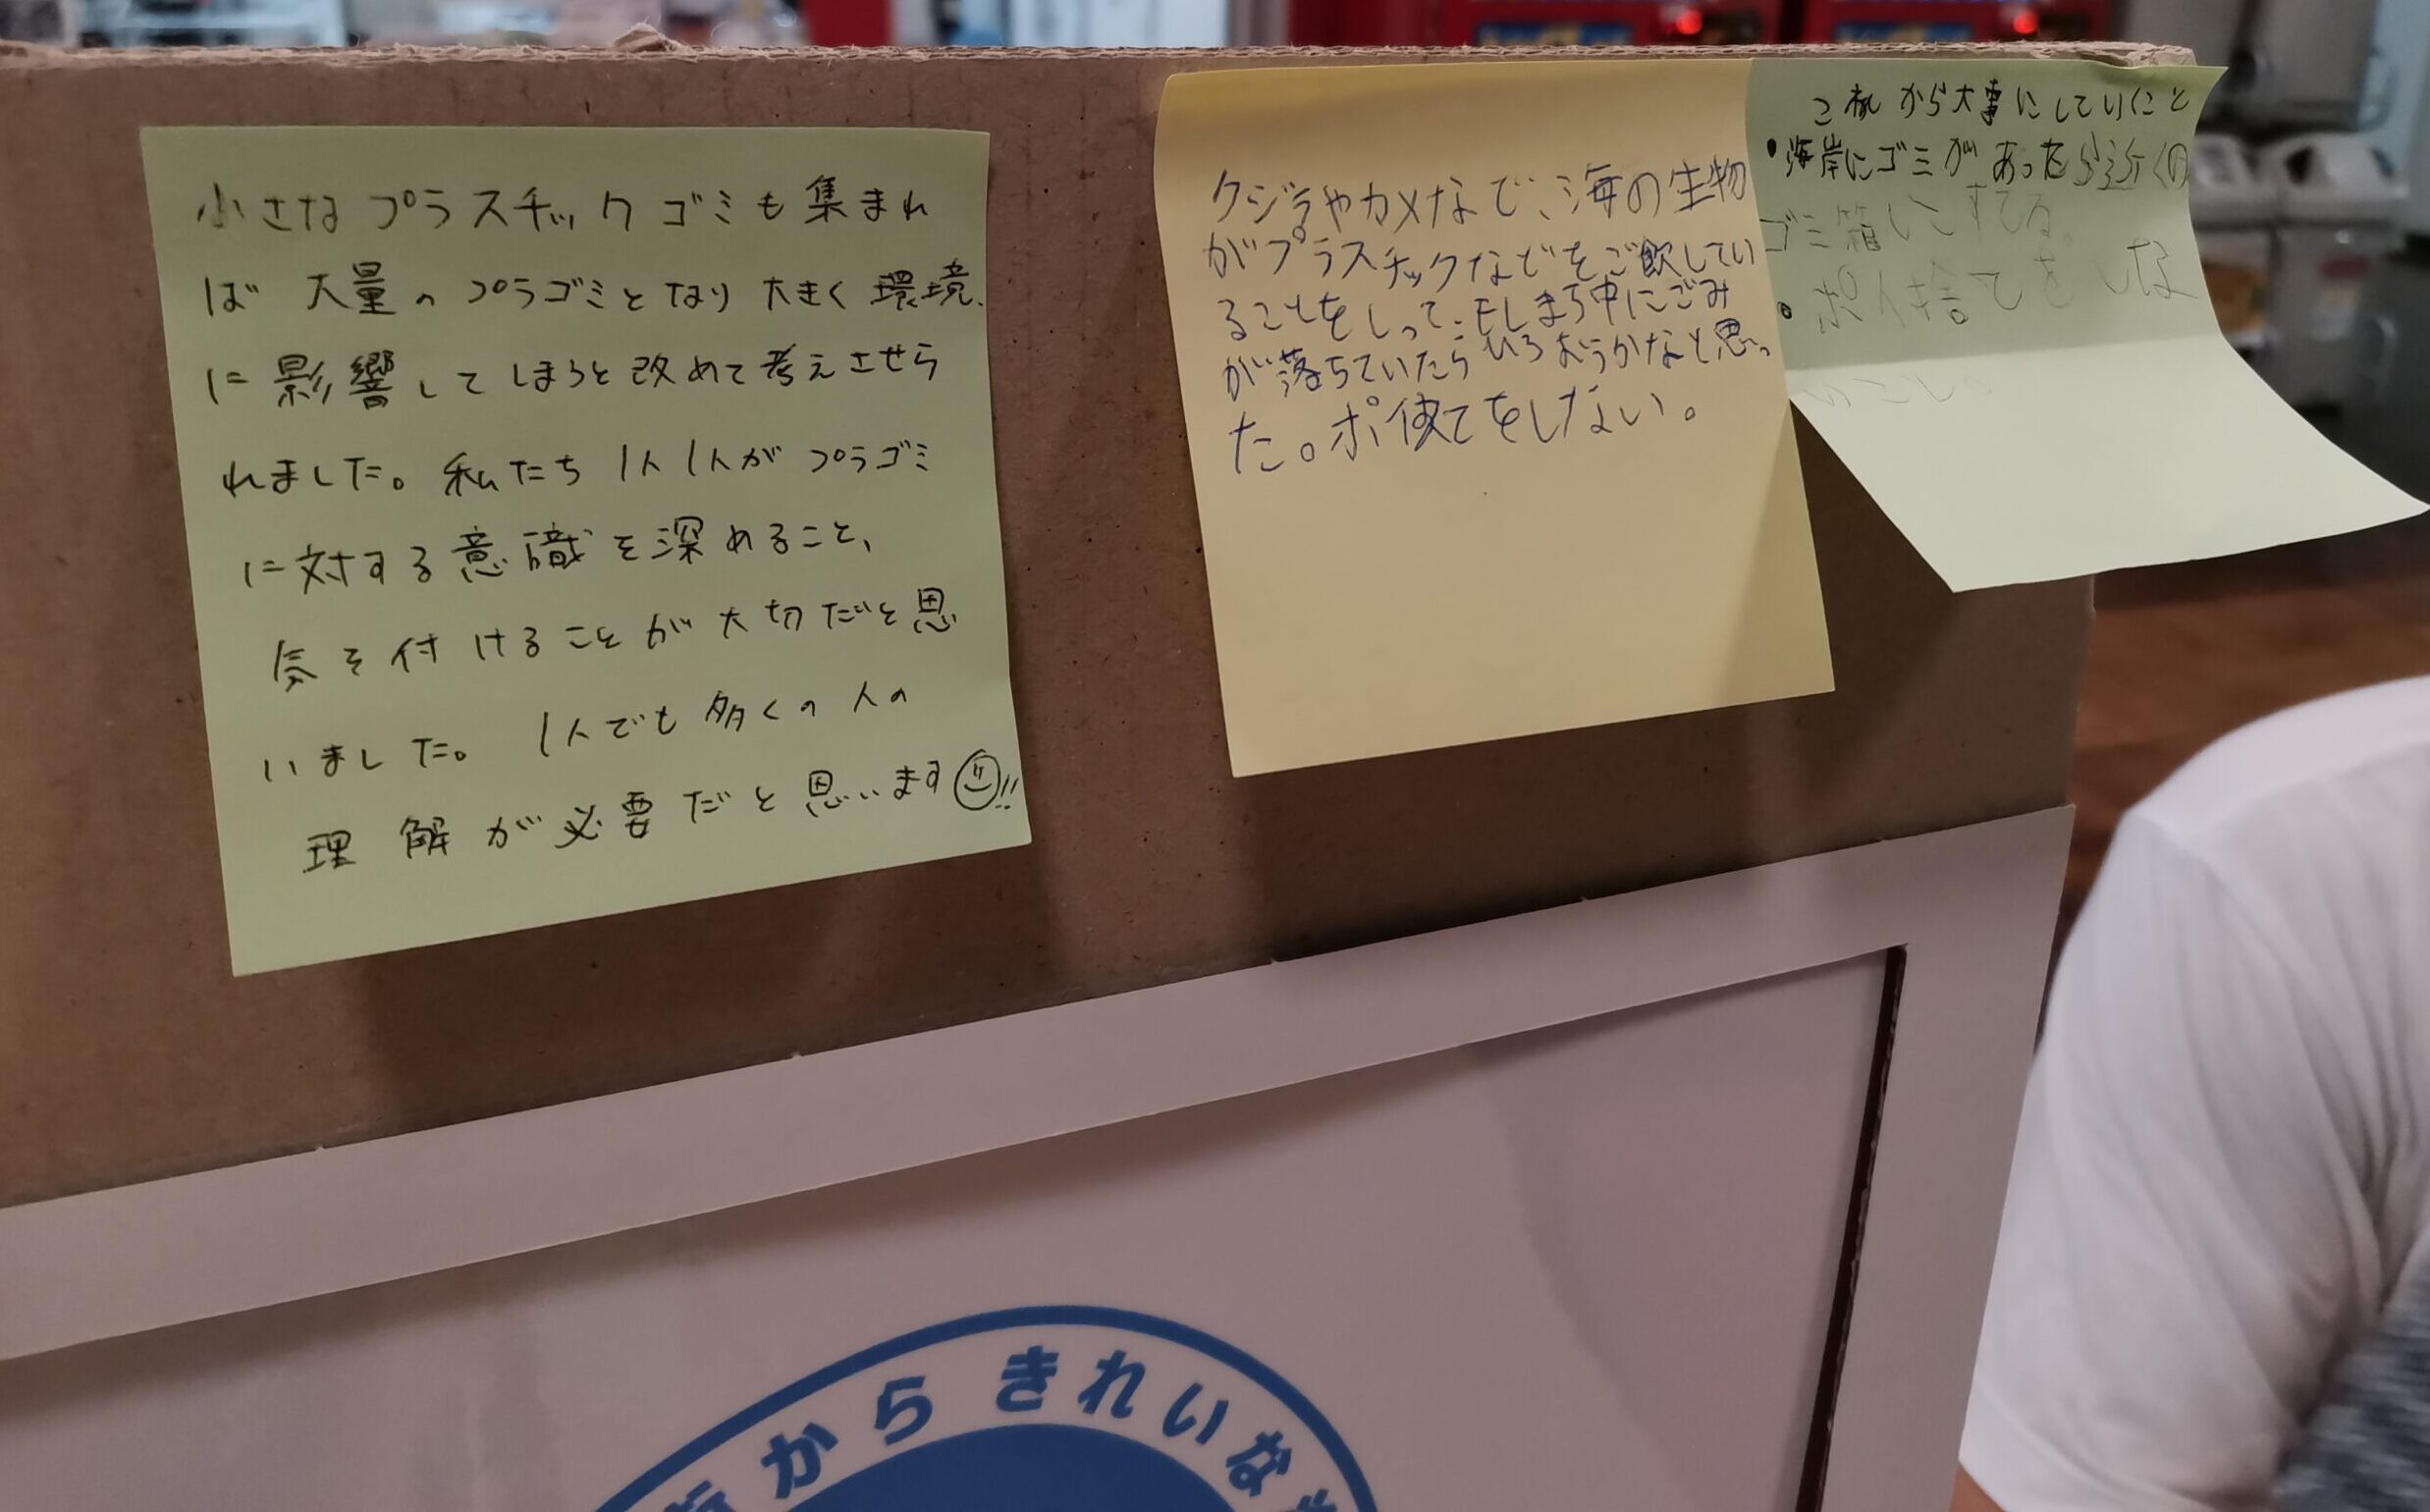 小さなプラスチックゴミも集まれ
ば大量のプラゴミとなり大きく環境
に影響してしまうと改めて考えさせら
れました。私たち1人1人がプラゴミ
に対する意識を深めること、
気を付けることが大切だと思
いました。1人でも多くの人の
理解が必要だと思います!!
クジラやカメなで、海の生物
がプラスチックなどをご飲してい
ることをしって、もしまち中にごみ
が落ちていたらひろおうかなと思っ
た。ポイ捨てをしない。
これから大事にしていくこと
・海岸にゴミがあったら近くの
ゴミ箱にすてる。
・ポイ捨てをしな
いこと。
街からきれいな